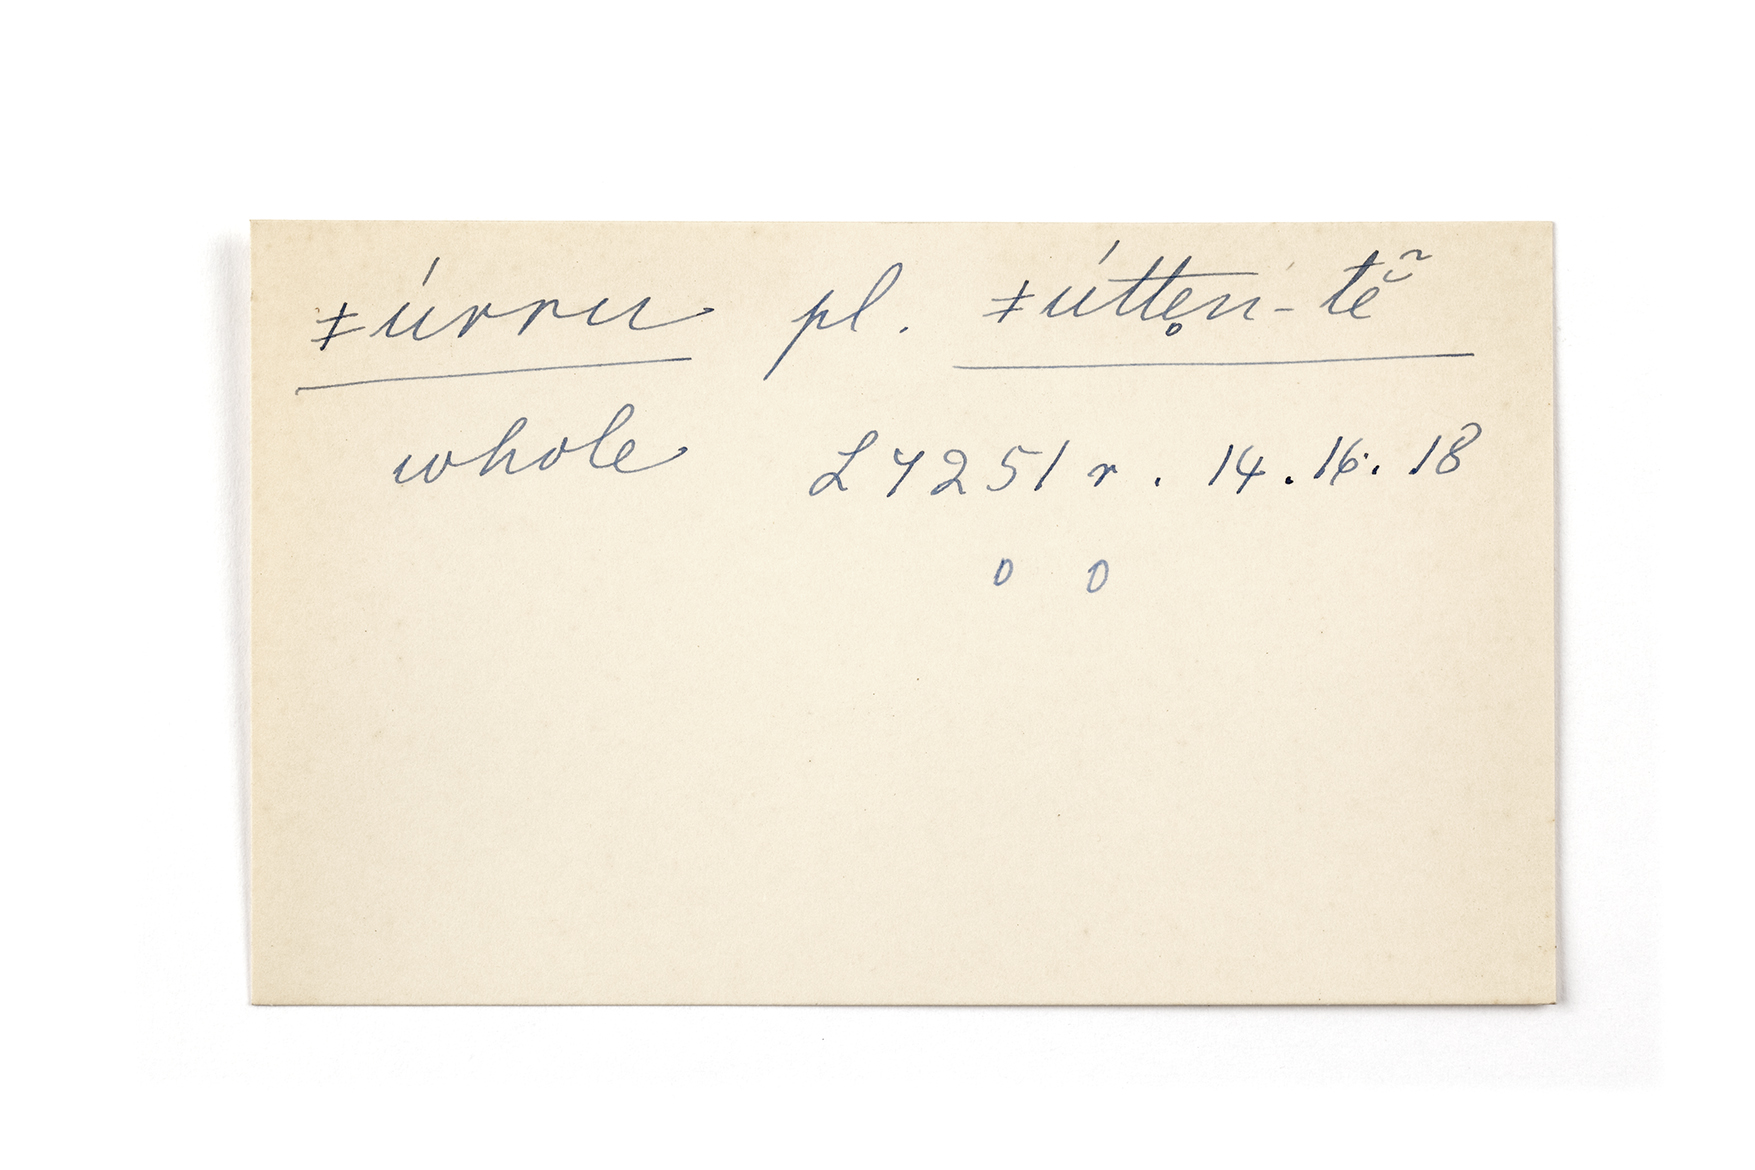 ǂúrru pl. ǂútten̥-tẽ̆
whole L 7251 r. 14.16.18
0 0